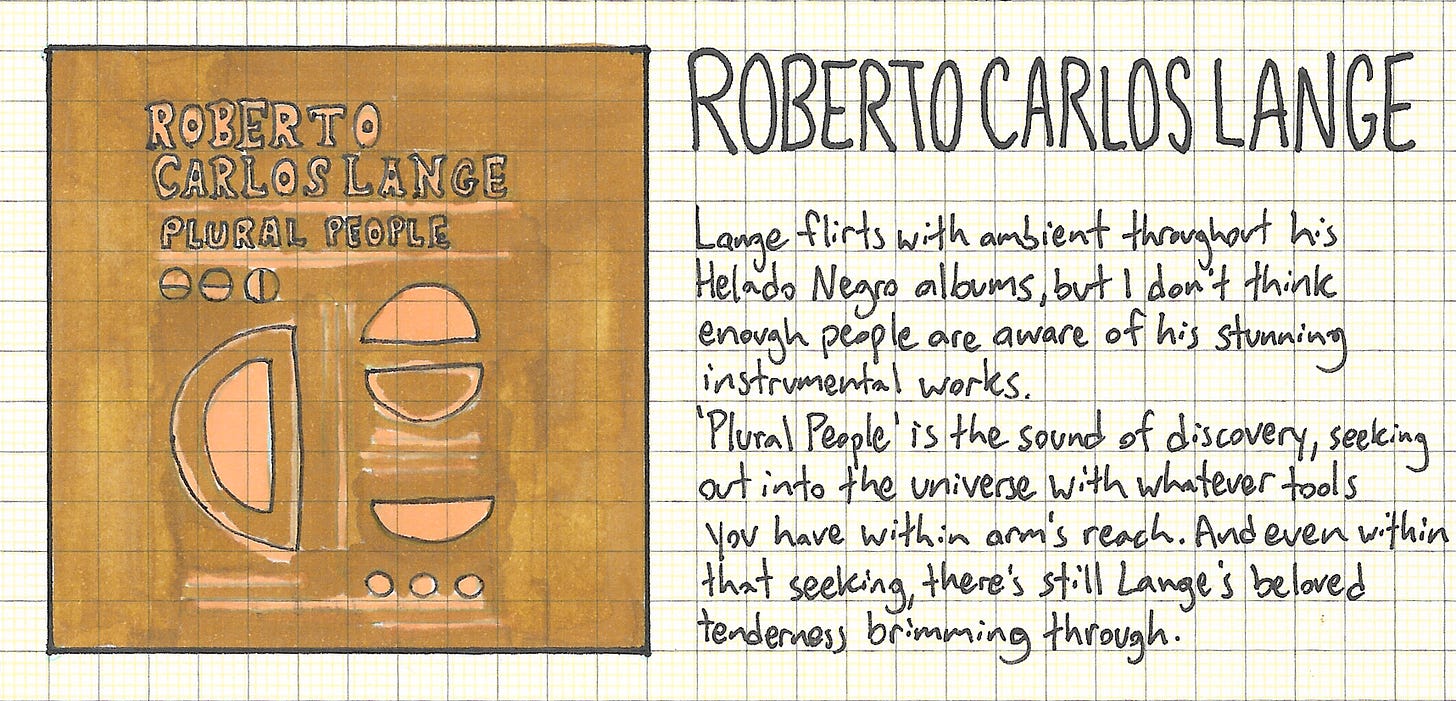 ROBERTO
CARLOS LANGE
PLURAL PEOPLE
ROBERTO CARLOS LANGE
Lange flirts with ambient throughout his
Helado Negro albums, but I don't think
enough people are aware of his stunning
instrumental works.
'Plural People' is the sound of discovery, seeking
out into the universe with whatever tools
you have within arm's reach. And even within
that seeking, there's still Lange's beloved
tenderness brimming through.